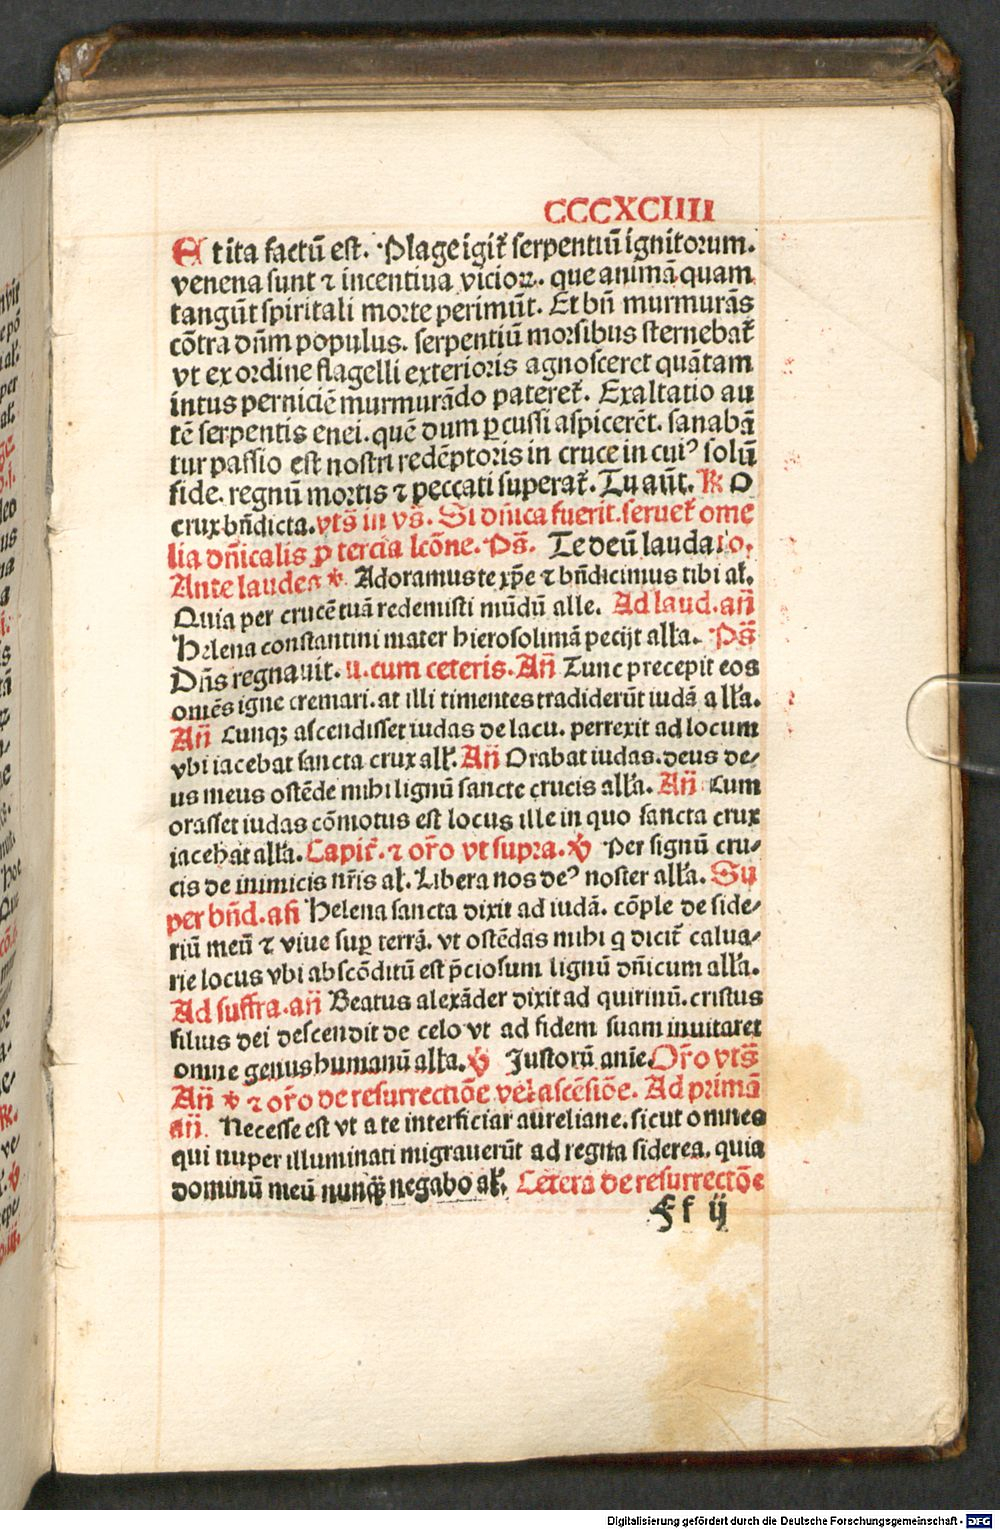 CCCXCIIII
Et ita factū est. Plage igit᷑ serpentiū ignitorum.
venena sunt ⁊ incentiua vicioꝝ. que animā quam
tangūt spiritali morte perimūt. Et bn̄ murmurās
cōtra dn̄m populus. serpentiū morsibus sternebat᷑
vt ex ordine flagelli exterioris agnosceret quātam
intus perniciē murmurādo pateret᷑. Exaltatio au
tē serpentis enei. quē dum ꝑcussi aspicerēt. sanabā
tur passio est nostri redēptoris in cruce in cuiꝰ solū
fide. regnū mortis ⁊ peccati superat᷑. Tu aūt. ℟ O
crux bn̄dicta. vts̄ in vs̄. Si dn̄ica fuerit. seruet᷑ ome
lia dn̄icalis ꝓ tercia lcōne. Ps̄. Te deū lauda
Ante laudes ℣ Adoramus te xp̄e ⁊ bn̄dicimus tibi al᷑.
Quia per crucē tuā redemisti mūdū alle. Ad laud. an̄
Helena constantini mater hierosolimā pecijt all᷑a. Ps̄
Dn̄s regnauit. cum ceteris. An̄ Tunc precepit eos
omēs igne cremari. at illi timentes tradiderūt iudā all᷑a.
An̄ Cunqꝫ ascendisset iudas de lacu. perrexit ad locum
vbi iacebat sancta crux all᷑. An̄ Orabat iudas. deus de⸗
us meus ostēde mihi lignū sancte crucis all᷑a. An̄ Cum
orasset iudas cōmotus est locus ille in quo sancta crux
iacebat all᷑a. Capit᷑. ⁊ or᷑o vt supra. ℣ Per signū cru⸗
cis de inimicis nr᷑is al᷑. Libera nos deꝰ noster all᷑a. Su
per bn̄d. an̄ Helena sancta dixit ad iudā. cōple de side⸗
riū meū ⁊ viue suꝑ terrā. vt ostēdas mihi q dicit᷑ calua⸗
rie locus vbi abscōditū est p̄ciosum lignū dn̄icum all᷑a.
Ad suffra. an̄ Beatus alexāder dixit ad quirinū. cristus
filius dei descendit de celo vt ad fidem suam inuitaret
omne genus humanū all᷑a. ℣ Justorū anīe. Or᷑o vts̄
An̄ ℣ ⁊ or᷑o de resurrectiōe vel ascēsiōe. Ad primā
an̄. Necesse est vt a te interficiar aureliane. sicut omnes
qui nuper illuminati migrauerūt ad regna siderea. quia
dominū meū nunqꝫ negabo al᷑. Cetera de resurrectōe
Ff ij
Digitalisierung gefördert durch die Deutsche Forschungsgemeinschaft - DFG